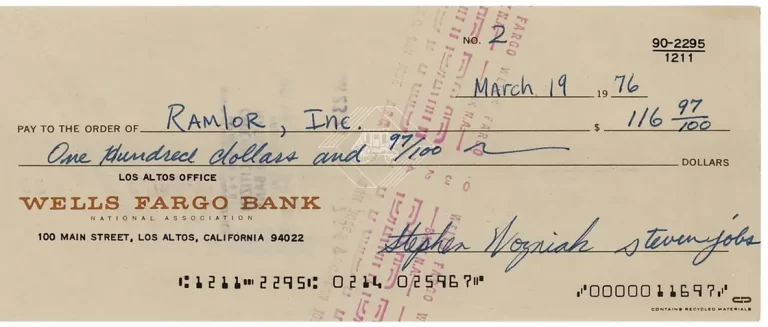 NO. 2
90-2295
1211
March 19 1976
PAY TO THE ORDER OF Ramlor, Inc. $ 116 97/100
One Hundred dollars and 97/100 DOLLARS
LOS ALTOS OFFICE
WELLS FARGO BANK
NATIONAL ASSOCIATION
100 MAIN STREET, LOS ALTOS, CALIFORNIA 94022
Stephen Wozniak steven jobs
⑆1211⑉2295⑆ 0214 025967⑈ ⑈0000011697⑈
CONTAINS RECYCLED MATERIALS